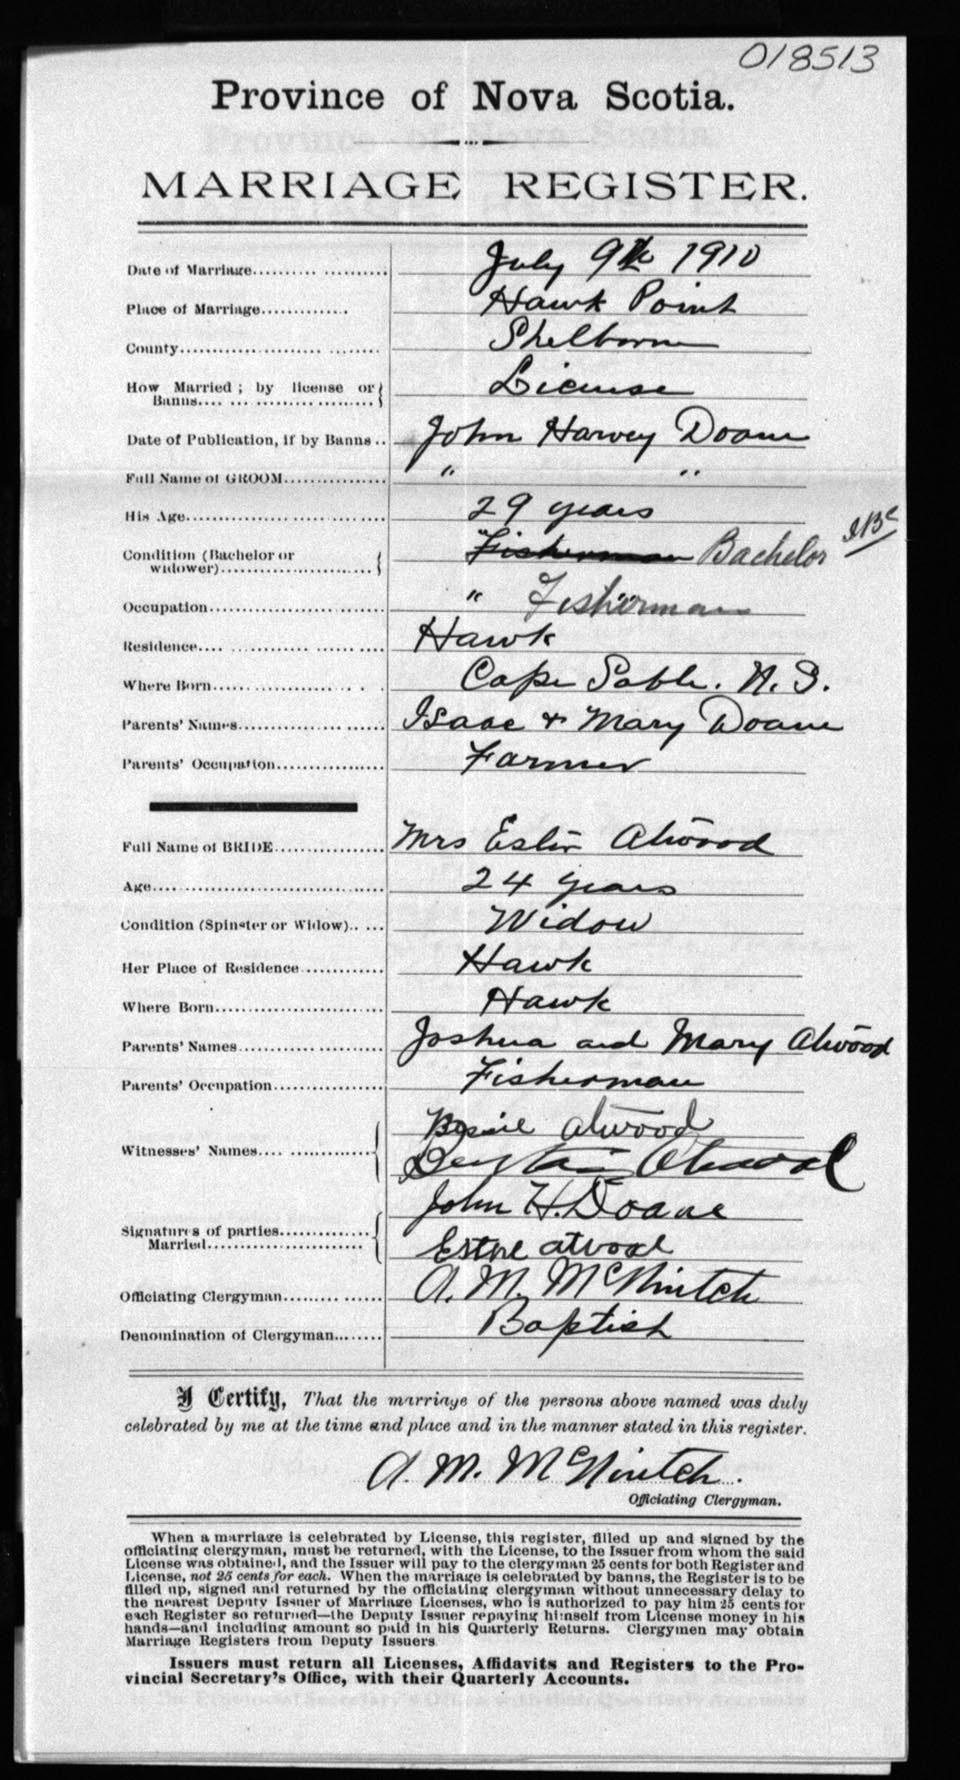 018513
Province of Nova Scotia.
MARRIAGE REGISTER.
Date of Marriage.......... July 9th 1910
Place of Marriage............. Hawk Point
County............................ Shelborne
How Married; by license or
Banns.... License
Date of Publication, if by Banns .. John Harvey Doane
Full Name of GROOM............... " "
His Age............................ 29 years
Condition (Bachelor or
widower)...................... Fisherman Bachelor
Occupation........................ " Fisherman
Residence.... Hawk
Where Born.................. Cape Sable. N. S.
Parents' Names..................... Isaac & Mary Doane
Parents' Occupation................ Farmer
Full Name of BRIDE................ Mrs Ester Atwood
Age.... 24 years
Condition (Spinster or Widow).. .... Widow
Her Place of Residence............ Hawk
Where Born........................ Hawk
Parents' Names..................... Joshua and Mary Atwood
Parents' Occupation................ Fisherman
Witnesses' Names.... atwood
John H. Doane
Signatures of parties.............
Married....................... atwood
Officiating Clergyman........ ...... A. M. McNintch
Denomination of Clergyman........ Baptist
I Certify, That the marriage of the persons above named was duly
celebrated by me at the time and place and in the manner stated in this register.
A. M. McNintch.
Officiating Clergyman.
When a marriage is celebrated by License, this register, filled up and signed by the
officiating clergyman, must be returned, with the License, to the Issuer from whom the said
License was obtained, and the Issuer will pay to the clergyman 25 cents for both Register and
License, not 25 cents for each. When the marriage is celebrated by banns, the Register is to be
filled up, signed and returned by the officiating clergyman without unnecessary delay to
the nearest Deputy Issuer of Marriage Licenses, who is authorized to pay him 25 cents for
each Register so returned—the Deputy Issuer repaying himself from License money in his
hands—and including amount so paid in his Quarterly Returns. Clergymen may obtain
Marriage Registers from Deputy Issuers
Issuers must return all Licenses, Affidavits and Registers to the Pro-
vincial Secretary's Office, with their Quarterly Accounts.